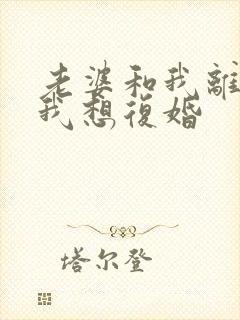 老婆和我離
我想復婚
塔尔登